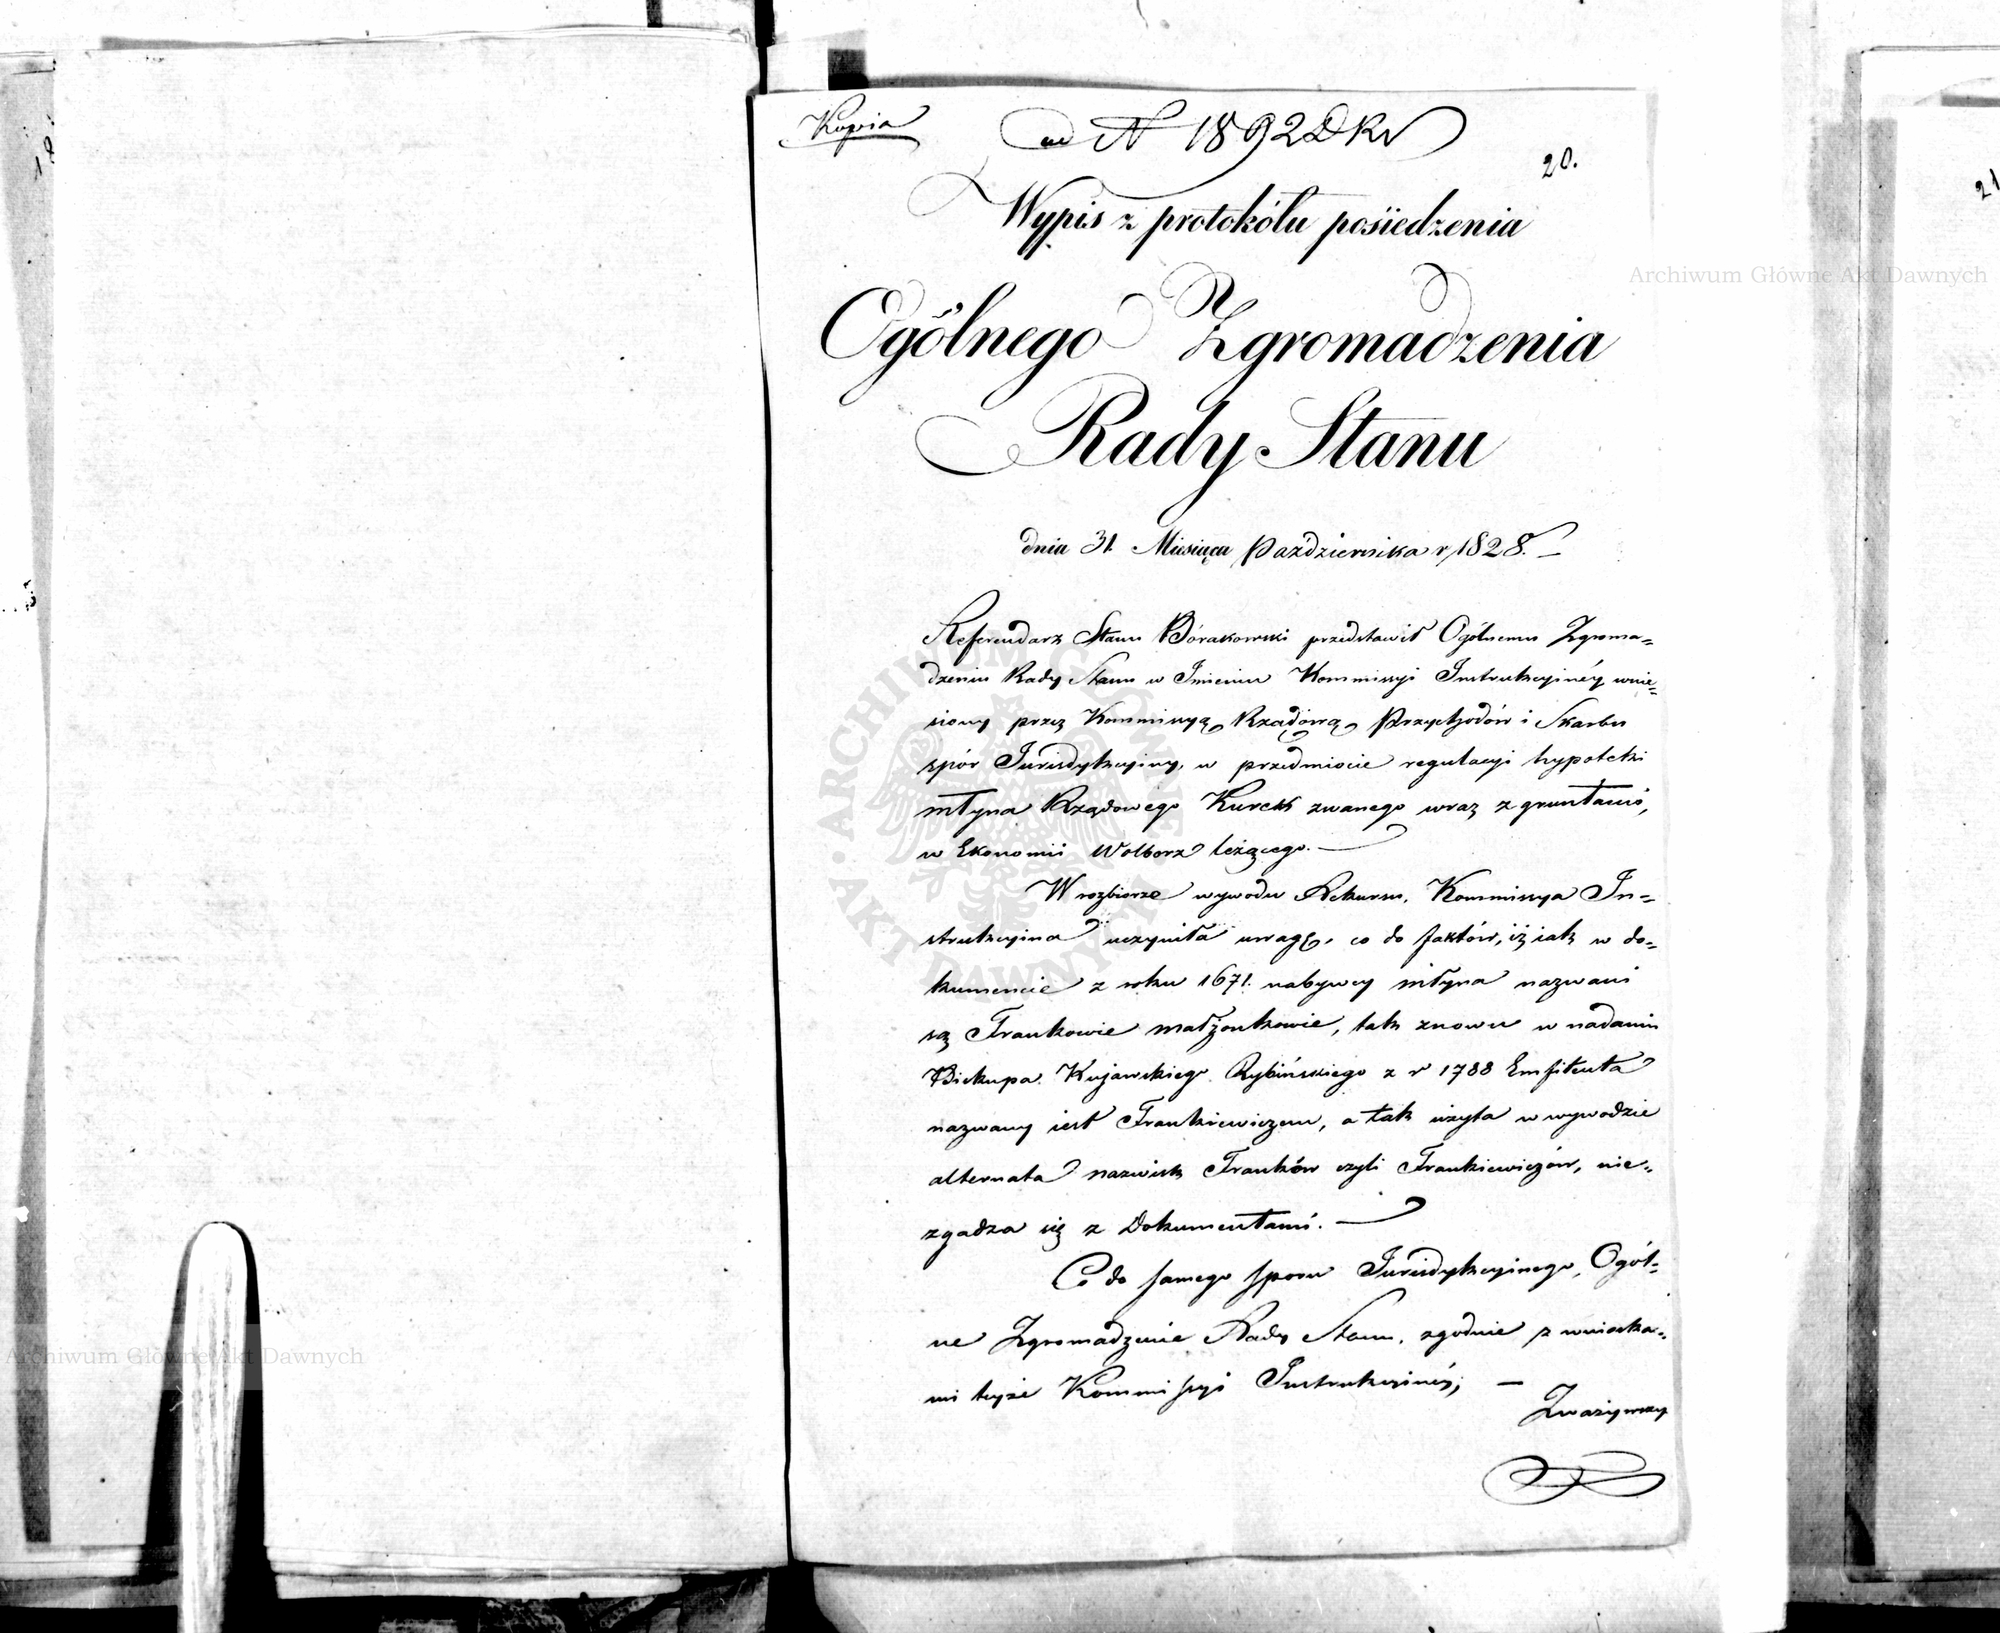 Kopia
ad N 1892 DKR
20.
Wypis z protokółu posiedzenia
Ogólnego Zgromadzenia
Rady Stanu
dnia 31. Miesiąca Października r. 1828. —
Referendarz Stanu Bórakowski przedstawił Ogólnemu Zgroma=
dzeniu Rady Stanu w Imieniu Kommissyi Instrukcyinéy wnie=
siony przez Kommissyą Rządową Przychodów i Skarbu
spór Jurisdykcyiny, w przedmiocie regulacyi hypoteki
młyna Rządowego Kurek zwanego wraz z gruntami,
w Ekonomii Wolborz leżącego. —
W rozbiorze wywodu Rekursu, Kommissya In=
strukcyina uczyniła uwagę, co do faktów, iż iak w do=
kumencie z roku 1671. nabywcy młyna nazwani
są Frankowie małżonkowie, tak znowu w nadaniu
Biskupa Kujawskiego Rybińskiego z r 1788 Emfiteuta
nazwany iest Frankiewiczem, a tak użyta w wywodzie
alternata nazwisk Franków czyli Frankiewiczów, nie=
zgadza się z Dokumentami. —
Co do samego sporu Jurisdykcyinego, Ogól=
ne Zgromadzenie Rady Stanu, zgodnie z wnioska=
mi teyże Kommissyi Instrukcyinéy; —
Zważywszy
Archiwum Główne Akt Dawnych
Archiwum Główne Akt Dawnych
ARCHIWUM GŁÓWNE AKT DAWNYCH
21